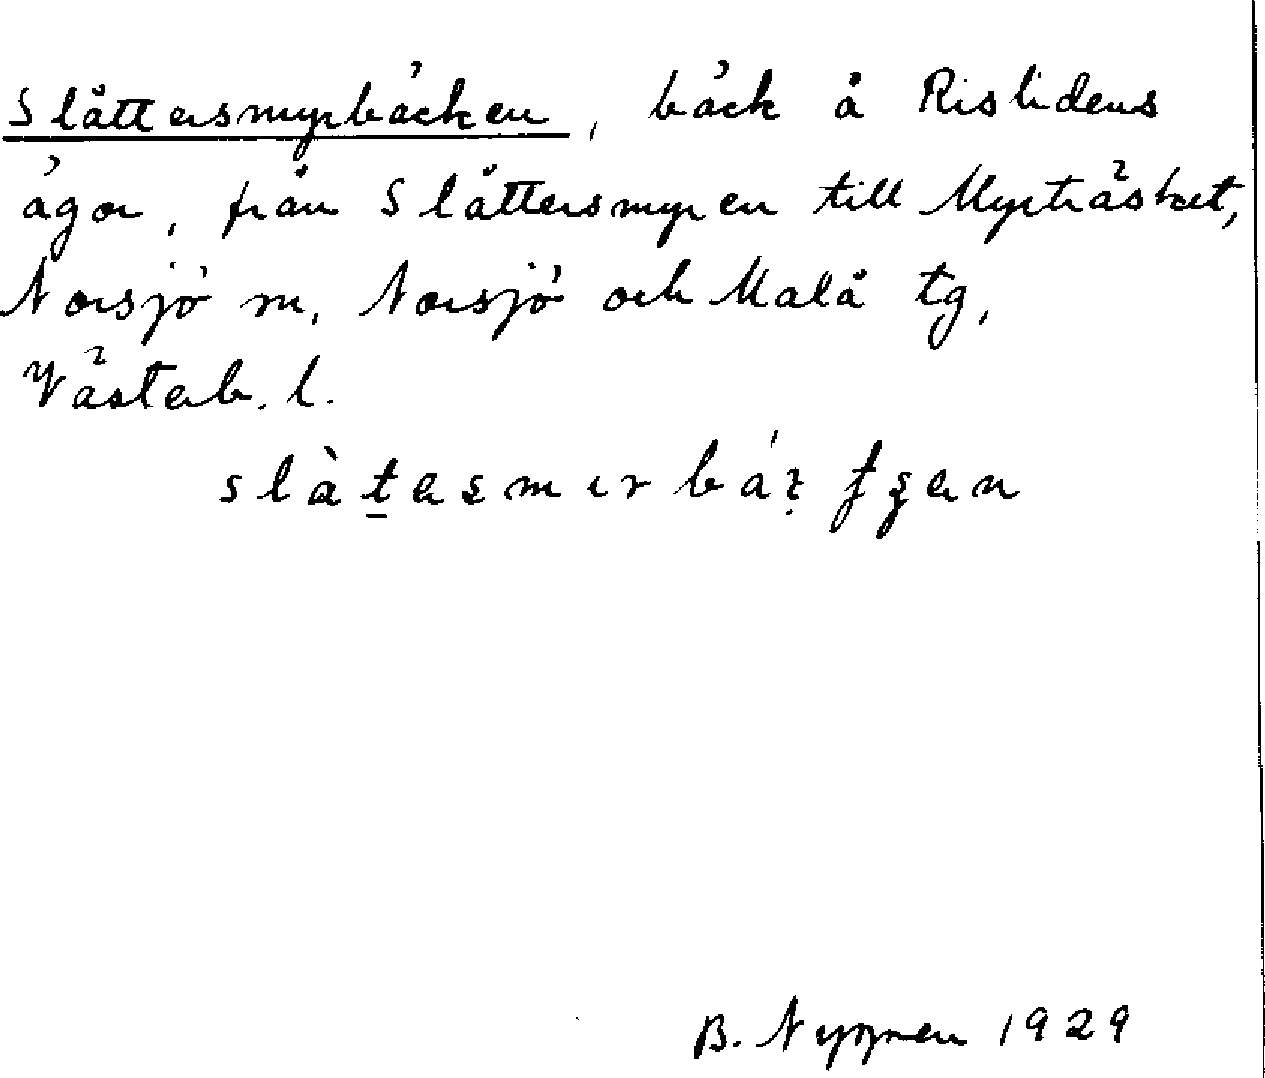 Slåttersmyrbäcken, bäck å Rislidens
ägor, från Slåttersmyren till Myrträsket,
Norsjö sn, Norsjö och Malå tg,
Västerb. l.
B. 1929